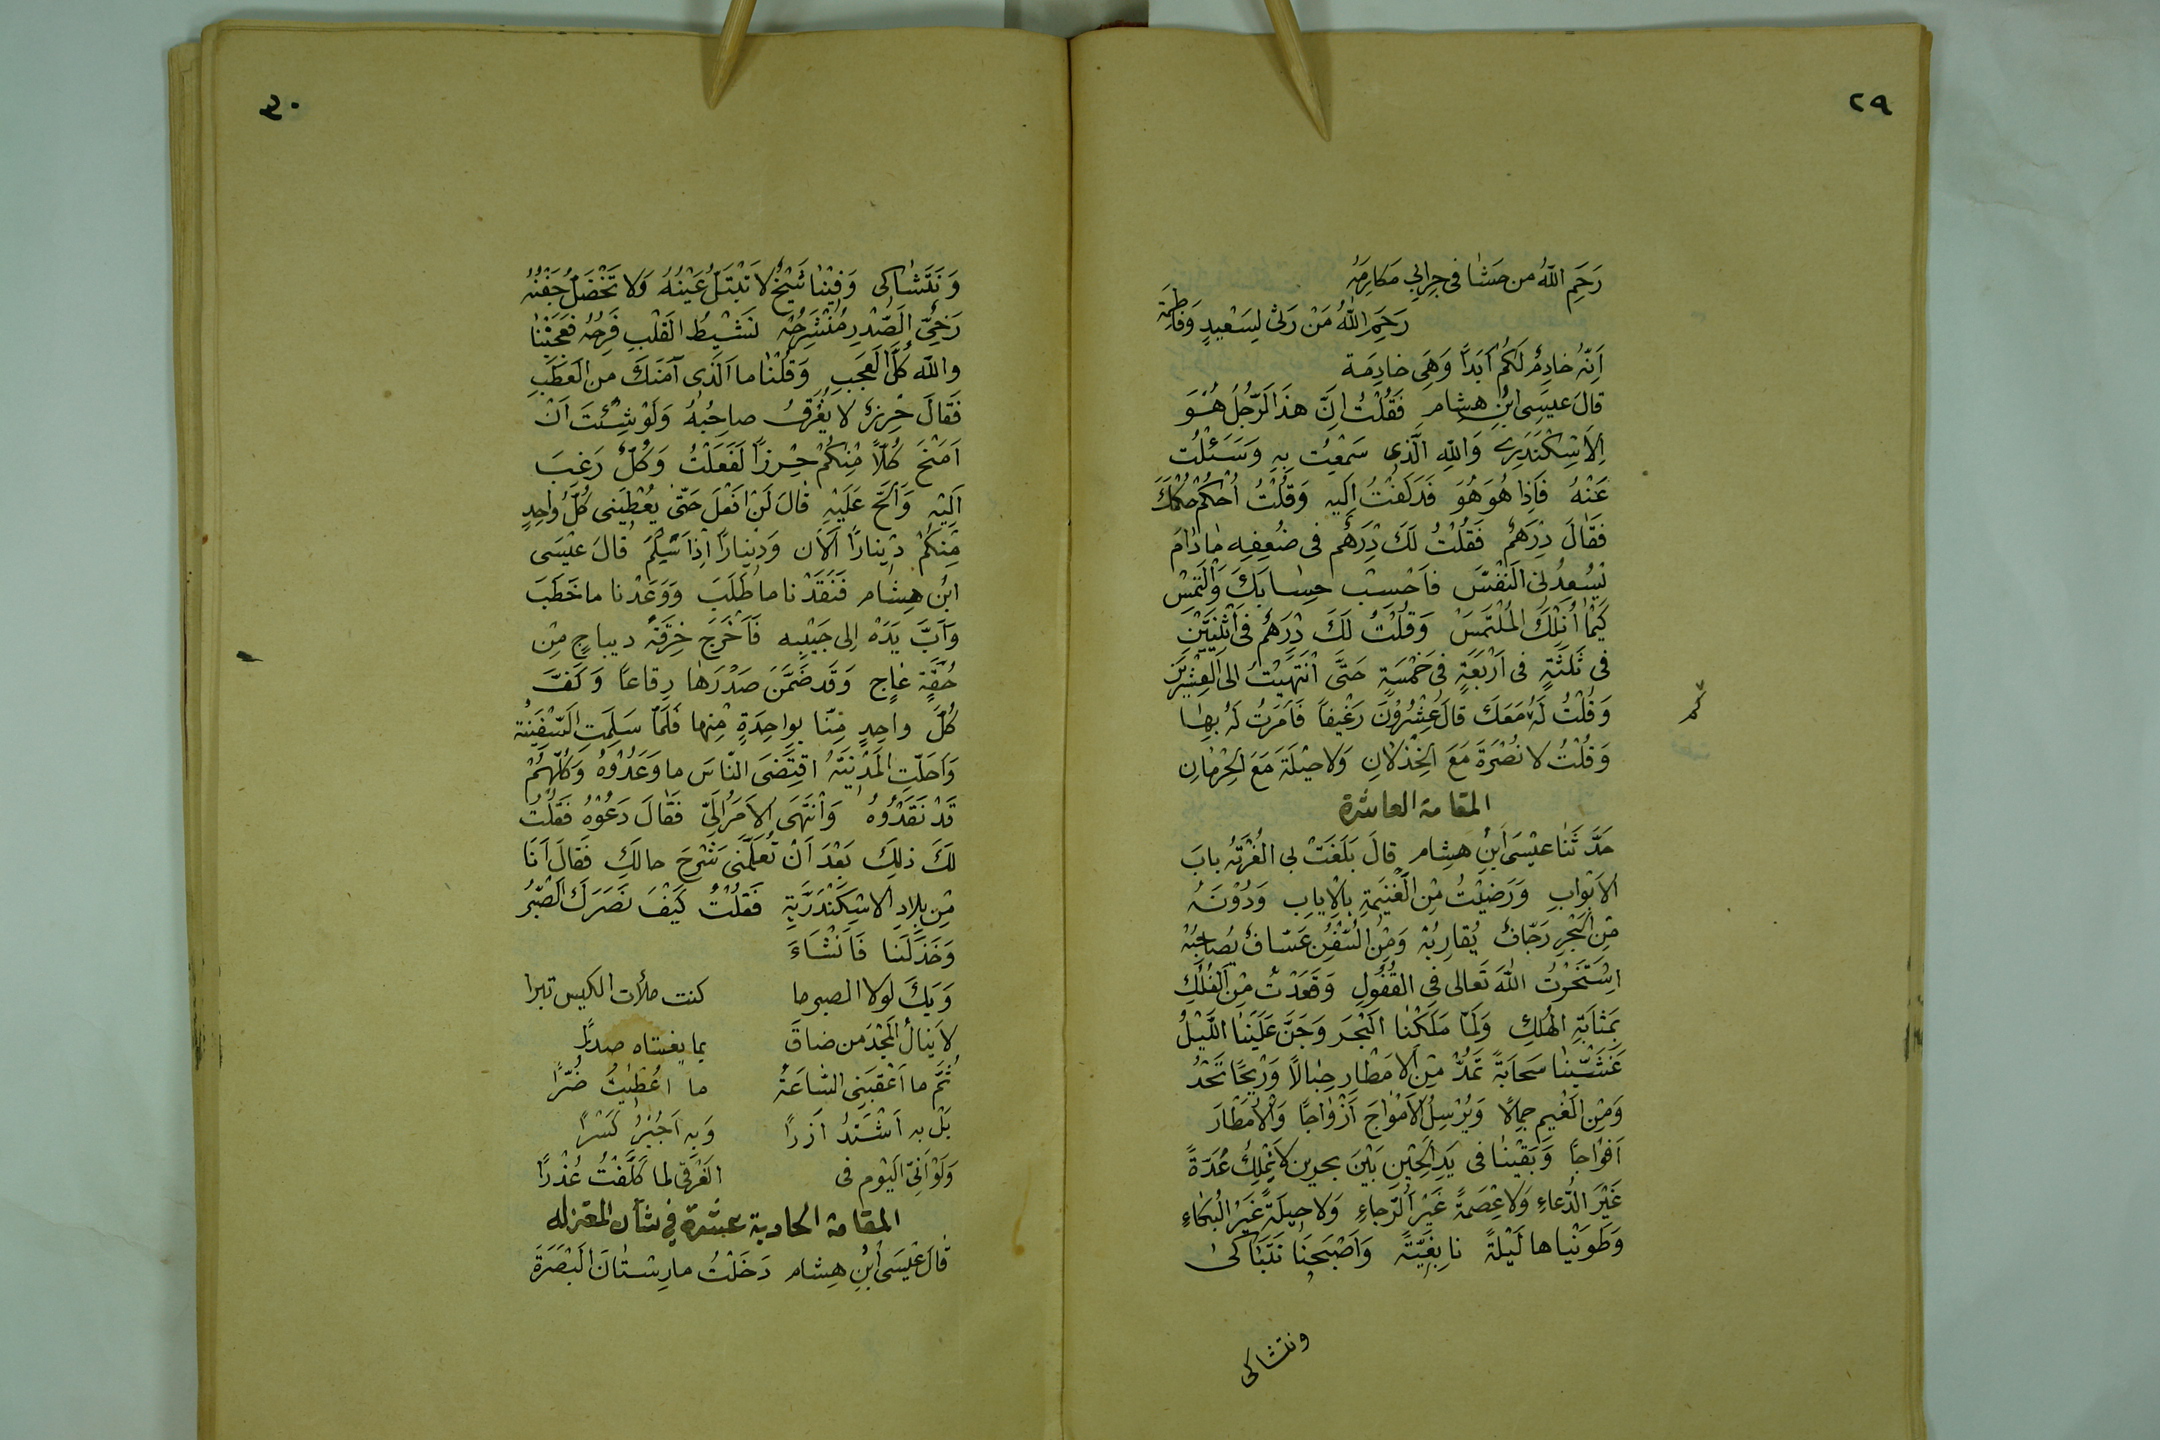 ٢٩
رَحِمَ اللّٰهُ من حَشا فى جِرابي مَكارِمَهُ
رَحِمَ اللّٰهُ مَنْ رَثى لِسَعْيدٍ وَفاطِمَة
اَنَّهُ خادِمٌ لَكُم اَبَداً وَهَى خادِمَة
قالَ عيسَى ابْنِ هِشام فَقُلْتُ اِنَّ هذَا الَرّجُلُ هُوَ
الاَسْكَنْدَرِى وَاللهِ الَّذى سَمْعِتُ بِهِ وَسَئَلْتُ
عَنْهُ فَاِذا هُوَ هُوَ فَدَلَفْتُ اِلَيهِ وَقُلْتُ اُحْكُمْ حُكْمَكَ
فَقالَ دِرَهْم فَقُلْتُ لَكَ دِرَهْم فى ضُعِفِه ما دامَ
يُسْعِدُنى النَفْسَ فَاحْسِبْ حِسابَكَ وَالْتَمِسْ
كَيْما اُنِلْكَ المُلْتَمَسَ وَقُلْتُ لَكَ دِرَهْم فى اَثْنِيَيْنِ
فى ثَلثَةٍ فى اَرْبَعَةٍ فى خَمْسَةٍ حَتَّى اْنتَهَيْتُ الى العِشْرِيَنِ
وَقُلْتُ لَهُ مَعَكَ قالَ عِشْرُونَ رَغْيفاً فَاَمَرْتُ لَهُ بِها
كم
وَقُلْتُ لا نُصْرَةَ مَعَ الخِذْلانِ وَلا حيْلَةَ مَعَ الحِرْمانِ
المقامة العاشرة
حَدَّثَنا عيْسَى اَبنِ هِشام قالَ بَلَغَتْ بى الغُرْبَةُ بابَ
الاَبْوابِ وَرَضيْتُ مْنِ الَغْنيَمةِ بِالْاِيابِ وَدُوْنَهُ
مْنِ البَحْرِ رَجّافٌ يُقارِبُهْ وَمِن السُّفُنِ عَسّافٌ يُصاحِبُهْ
اِسْتَخَرْتُ اللهَ تَعالى فى القُفُولِ وَقَعَدْتُ مْنِ الفُلْكِ
بِمَثابَةِ الهُلكِ وَلَمّا مَلَكْنا البَحْرَ وَجَنَّ عَلَيْنا اللَّيْلُ
غَشَّيْتنا سَحابَةٌ تَمُدُّ مْنِ الاَمْطارِ حِبالاً وَرْيحًا تَحْدُ
وَمْنِ الَغْيمِ جِبالًا وَيُرْسِلُ الاَمْواجَ اَزْواجًا وَالْاَمْطارَ
اَفْواجًا وَبَقْيْنا فى يَدِ الحَيْنِ بَيْنَ بحرين لا نَمْلِكُ عُدّةً
غَيْرَ الدُّعاءِ وَلا عِصْمَةً غَيْرَ الرَّجاءِ وَلا حيلَةً غَيْرَ البُكاءِ
وَطَوَنْياها لَيْلَةً نابِغَيّةً وَاَصْبَحْنا نَتَباكى
ونتشاكى
٣٠
وَنَتَشاكى وَفيْنا شَيْخٌ لا تَبْتَلُّ عَيْنُهُ وَلا تَخْضَلُّ جَفْنُهُ
رَخِىُّ الصَّدْرِ مُنْشَرِحُهُ نَشيْطُ القَلْبِ فَرِحُهُ فَعَجِبْنا
والله كُلَّ العَجَبِ وَقُلْنا ما الَّذى آمَنَكَ مِن العَطَبِ
فَقالَ حْرِزٌ لا يُغْرَقُ صاحِبُهُ وَلَوْ شِئْتَ اَنْ
اَمْنَحَ كُلّاً مْنِكُمْ حِرزاً لَفَعَلْتُ وَكُلٌّ رَغِبَ
اِلَيْهِ وَاَلَحَّ عَلَيْهِ قالَ لَنْ اَفْعَلَ حَتّى يُعْطِيَنى كُلُّ واحِدٍ
مِنْكُمْ دْينارًا اَلْان وَدينارًا اِذا سَلِمَ قالَ عيْسَى
ابْن هِشام فَنَقَدْنا ما طَلَبَ وَوَعَدْنا ما خَطَبَ
وَآبَ يَدَهْ اِلى جَيْبِه فَاَخْرَجَ خِرْقَةُ ديباجٍ مْنِ
حُقَّةِ عاجٍ وَقَد ضَمَّنَ صَدْرَها رِقاعًا وَكَفَّ
كُلَّ واحِدٍ مِنّا بِواحِدَةٍ مْنِها فَلَمّا سَلِمَتِ السَّفيْنَة
وَاَحَلَّتِ المَدْنيَةَ اقْتَضَى النّاسَ ما وَعَدُوْهُ وَكُلُّهُمْ
قَدْ نَقَدُوْهُ وَاْنتَهَى الاَمْرُ اِلَىَّ فَقالَ دَعُوْهُ فَقُلْتُ
لَكَ ذلِكَ بَعْدَ اَنْ تُعَلِّمَنى شَرْحَ حالِكَ فَقالَ اَنَا
مْنِ بِلادِ الاِسْكَنْدَرِيَّةِ فَقُلْتُ كَيْفَ نَصَرَكَ الصَّبْرُ
وَخَذَلَنا فَاَنْشاءَ
وَيَكَ لولا الصبر ما كنت ملأت الكيس تبرا
لا يَنالُ الَمْجدَ من ضاقَ بما يغشاه صدرًا
ثُمَّ ما اَعْقَبَنِى السّاعَةُ ما اُعْطيْتُ ضُرًّا
بَلْ به اَشْتَدُّ اَزرًا وَبِه اَجْبُرُ كَسْرًا
وَلَوْ اَنّى اليَوْم فى الغَرْقى لما كَلَّفْتُ عُذْرًا
المقامة الحادية عشرة فى شأن المعتزله
قالَ عْيسَى ابْنِ هِشام دَخَلْتُ مارِسْتانَ البَصْرَةَ